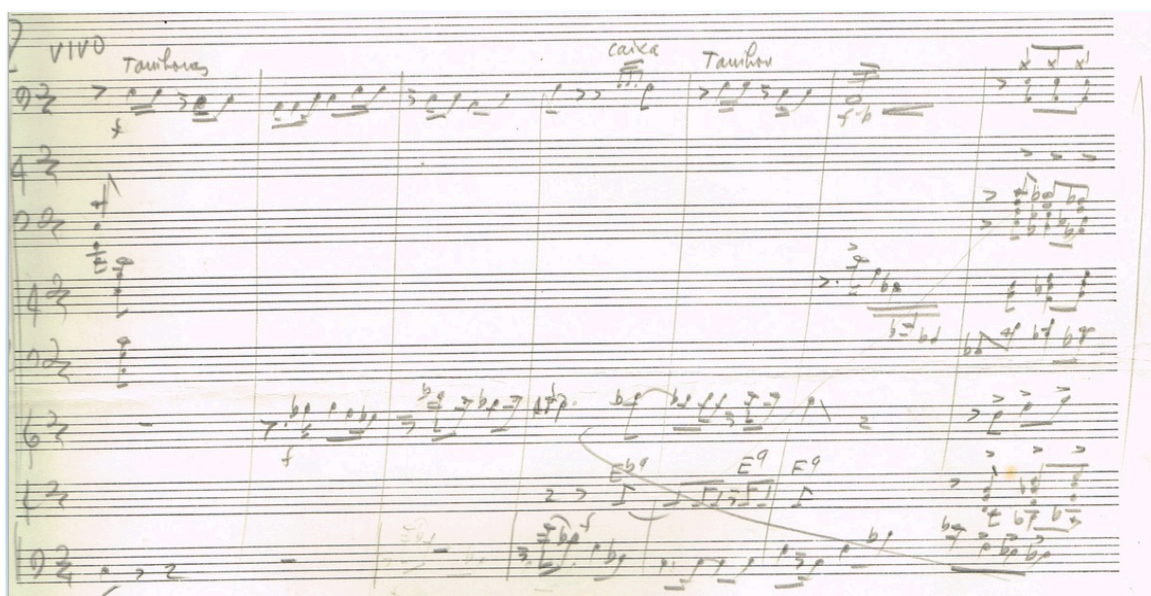 VIVO
Tambores
Caixa
Tambor
f
f-p
f
Eb9
E9
F9